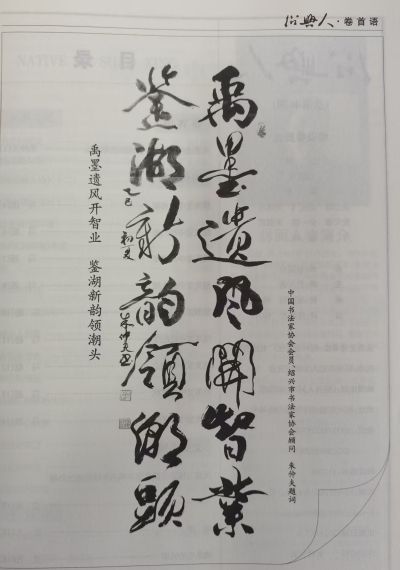 绍興人·卷首语
禹墨遗风開智業
鉴湖新韵領潮頭
乙巳初夏
朱仲夫书
中国书法家协会会员、绍兴市书法家协会顾问 朱仲夫题词
禹墨遗风开智业 鉴湖新韵领潮头